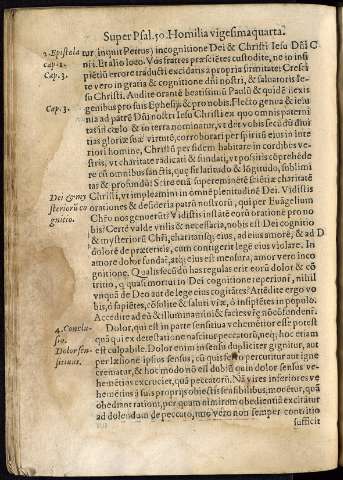 Super Psal. 50. Homilia vigesimaquarta.
2. Epistola
cap. 1.
Cap. 3.
tur, inquit Petrus) in cognitione Dei & Christi Iesu Dñi
sti. Et alio loco. Vos fratres præscientes custodite, ne in insi
pientiũ errore traducti excidatis à propria firmitate: Cresci
te vero in gratia & cognitione dñi nostri, & saluatoris Ie-
su Christi. Audite orantẽ beatissimũ Paulũ & quidẽ nixis
Cap. 3.
genibus pro suis Ephesijs & pro nobis. Flecto genua & ieiu
nia ad patrẽ Dñi nostri Iesu Christi ex quo omnis paterni
tas in cœlo & in terra nominatur, vt det vobis secũdũ diui
tias gloriæ suæ virtutẽ, corroborari per spiritũ eius in inte
riori homine, Christũ per fidem habitare in cordibus ve-
stris, vt charitate radicati & fundati, vt possitis cõprehẽde
re cũ omnibus sanctis, quę sit latitudo & lõgitudo, sublimi
tas & profundũ: Scire etiã supereminẽtẽ sciẽtiæ charitatẽ
Dei & my
steriorũ co
gnitio.
Christi, vt impleamini in omnẽ plenitudinẽ Dei. Vidistis
orationes & desideria patrũ nostrorũ, qui per Euãgelium
Chro nos genuerũt? Vidistis instãtẽ eorũ oratione pro no
bis? Certè valde vtilis & necessaria, nobis est Dei cognitio
& mysteriorũ Chri, charitatisq́; eius, ad eius amorẽ, & ad
dolorẽ de præteritis, cum contigerit lege eius violare. In
amore dolor fundat, atq́; eius est mensura, amor vero in co
gnitione. Qualis secũdũ has regulas erit eorũ dolor & cõ
tritio, q quasi mortui in Dei cognitione reperiunt, nihil
vnquã de Deo aut de lege eius cogitãtes? Attẽdite ergo vo
bis, ô sapiẽtes, cõsulite & saluti vræ, ô insipẽtes in populo.
Accedite ad eũ & illuminamini & facies vræ nõ cõfundent.
4. Conclu-
sio.
Dolor sen-
sitiuus.
Dolor, qui est in parte sensitiua vehemẽtior esse potest
quã qui ex detestatione nascitur peccatorũ, neq́; hoc etiam
est culpabile. Dolor enim in sensu dupliciter gignitur, aut
per læsione ipsius sensus, cũ quis ferro percutitur aut igne
crematur, & hoc modo nõ est dubiũ quin dolor sensus ve-
hemẽtius excruciet, quã peccatorũ. Nã vires inferiores ve
hemẽtius à suis proprijs obiectis sensibilibus, mouetur, quã
obediant rationi, per quam nimirum obedientiã excitatur
ad dolendum de peccato, imo vero non semper contritio
sufficit